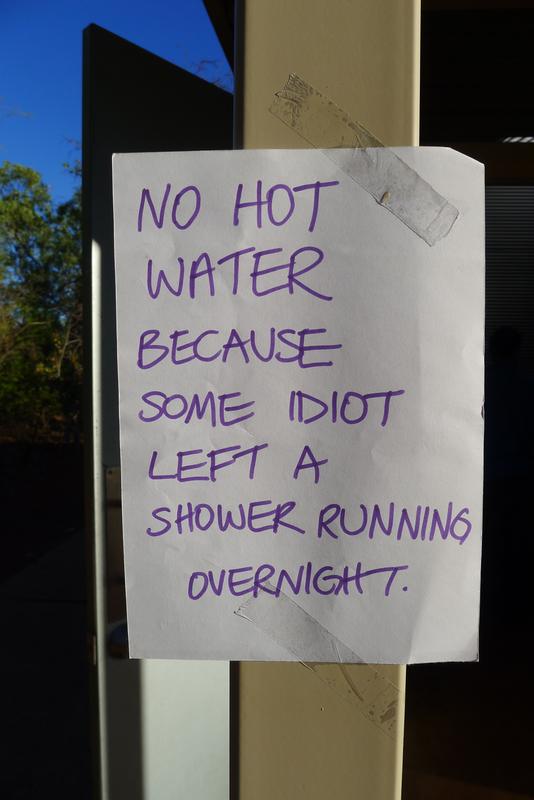 NO HOT
WATER
BECAUSE
SOME IDIOT
LEFT A
SHOWER RUNNING
OVERNIGHT.